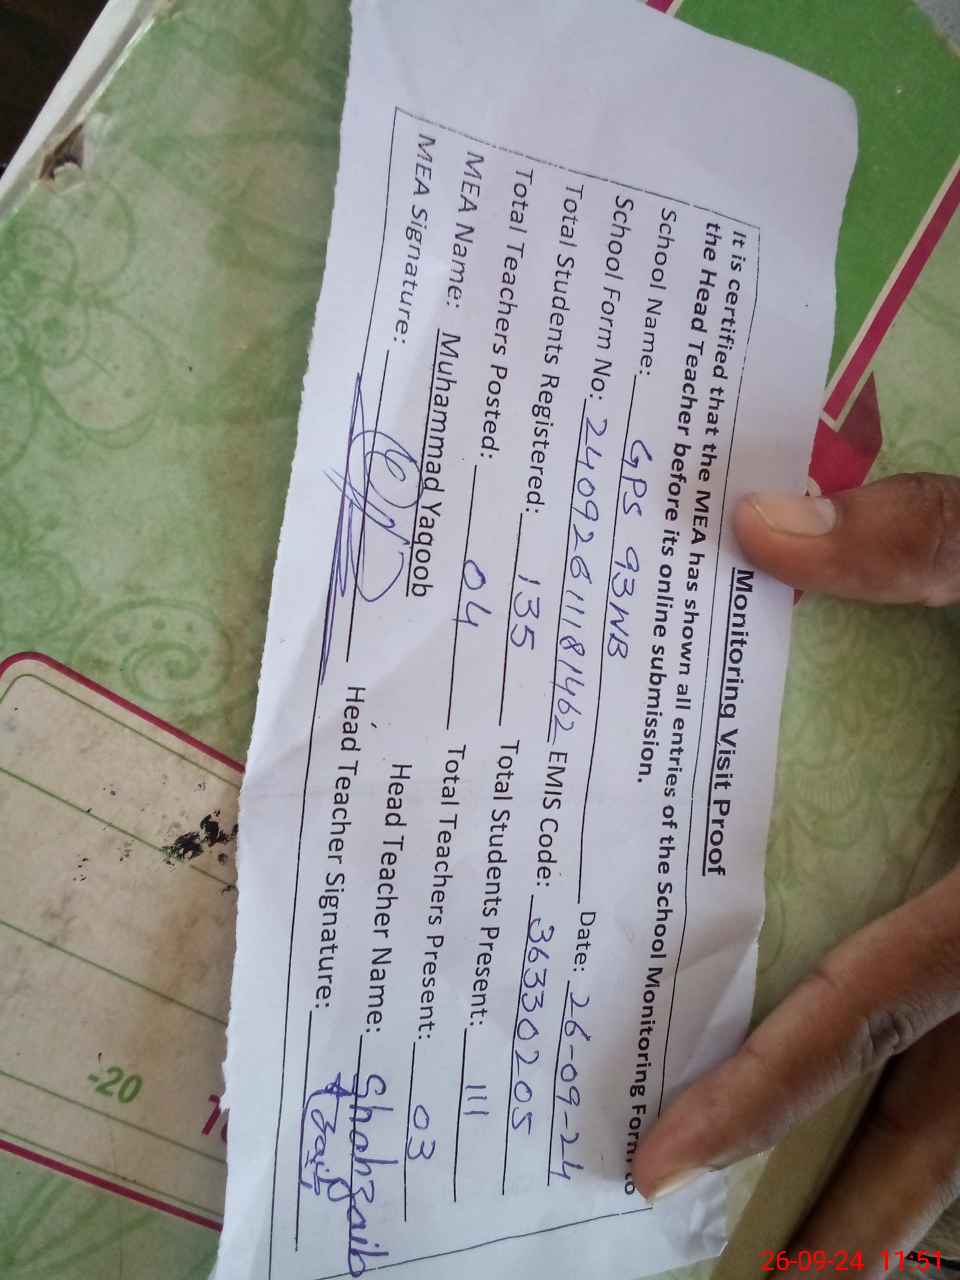 Monitoring Visit Proof
It is certified that the MEA has shown all entries of the School Monitoring Form to
the Head Teacher before its online submission.
School Name: GPS 93WB
School Form No: 24092611181462 Date: 26-09-24
Total Students Registered: 135 EMIS Code: 36330205
Total Teachers Posted: 04 Total Students Present: 111
MEA Name: Muhammad Yaqoob Total Teachers Present: 03
MEA Signature: Head Teacher Name: Shahzaib
Head Teacher Signature:
-20
26-09-24 11:51